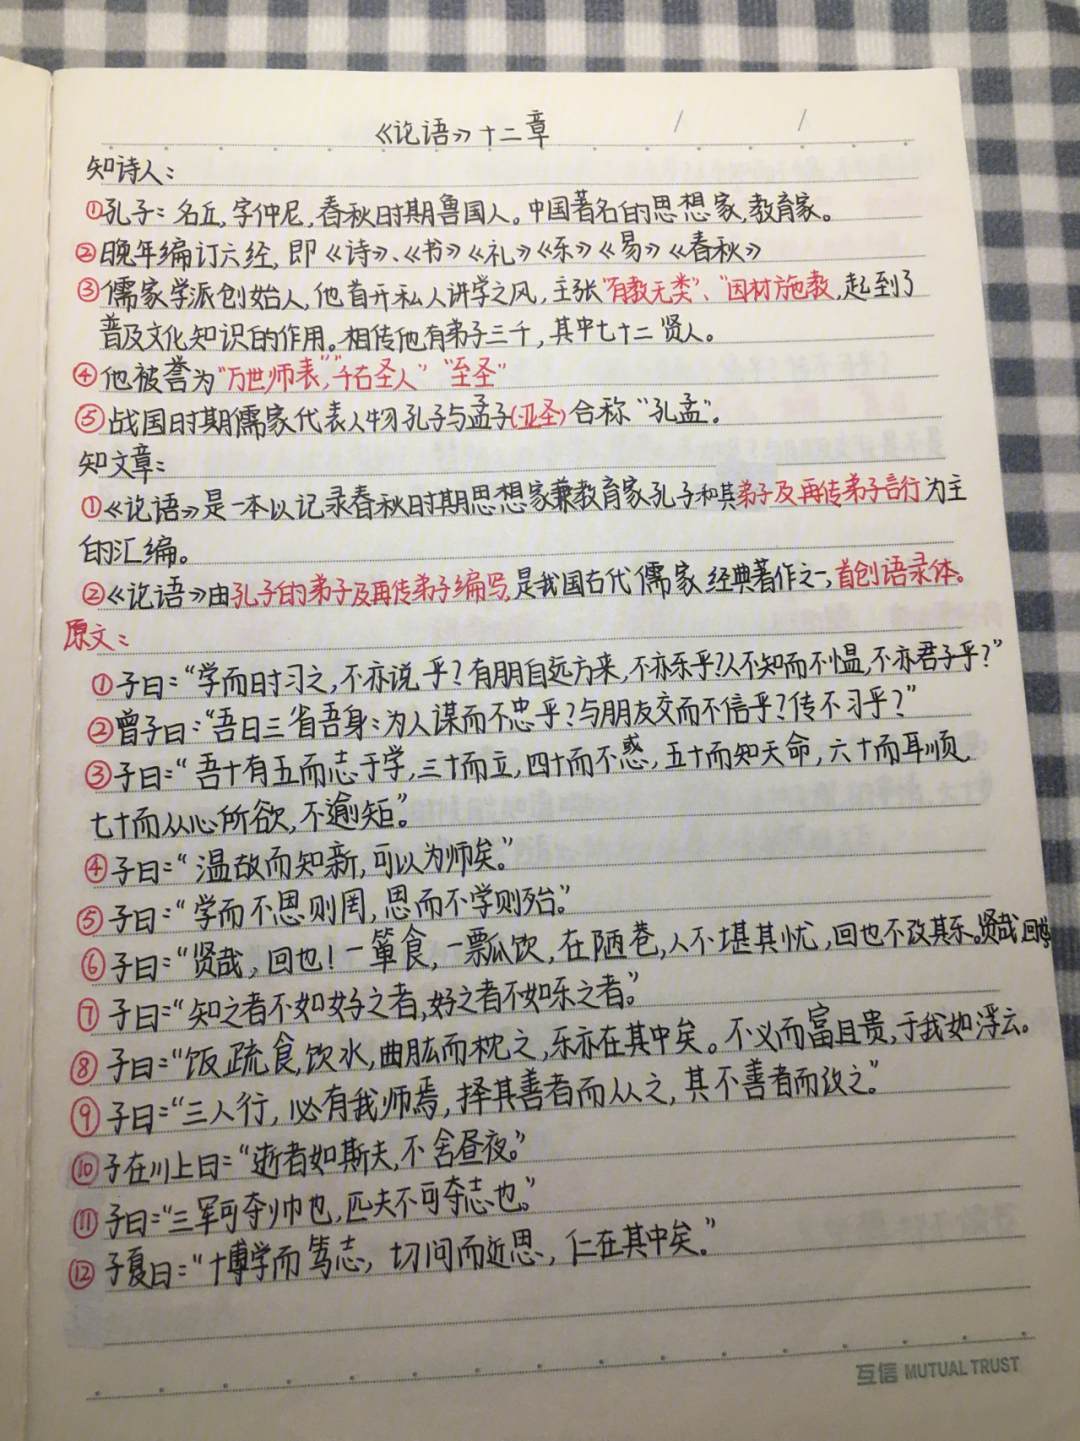 《论语》十二章
知诗人：
①孔子：名丘，字仲尼，春秋时期鲁国人。中国著名的思想家，教育家。
②晚年编订六经，即《诗》、《书》《礼》《乐》《易》《春秋》
③儒家学派创始人，他首开私人讲学之风，主张"有教无类"、"因材施教，起到了
普及文化知识的作用。相传他有弟子三千，其中七十二贤人。
④他被誉为"万世师表"，"千古圣人" "至圣"
⑤战国时期儒家代表人物孔子与孟子(亚圣)合称"孔孟"。
知文章：
①《论语》是一本以记录春秋时期思想家兼教育家孔子和其弟子及再传弟子言行为主
的汇编。
②《论语》由孔子的弟子及再传弟子编写，是我国古代儒家经典著作之一，首创语录体。
原文：
①子曰："学而时习之，不亦说乎？有朋自远方来，不亦乐乎？人不知而不愠，不亦君子乎？"
②曾子曰："吾日三省吾身：为人谋而不忠乎？与朋友交而不信乎？传不习乎？"
③子曰："吾十有五而志于学，三十而立，四十而不惑，五十而知天命，六十而耳顺，
七十而从心所欲，不逾矩。"
④子曰："温故而知新，可以为师矣。"
⑤子曰："学而不思则罔，思而不学则殆。"
⑥子曰："贤哉，回也！一箪食，一瓢饮，在陋巷，人不堪其忧，回也不改其乐。贤哉回也
⑦子曰："知之者不如好之者，好之者不如乐之者。"
⑧子曰："饭疏食，饮水，曲肱而枕之，乐亦在其中矣。不义而富且贵，于我如浮云。
⑨子曰："三人行，必有我师焉，择其善者而从之，其不善者而改之。"
⑩子在川上曰："逝者如斯夫，不舍昼夜。"
⑪子曰："三军可夺帅也，匹夫不可夺志也。"
⑫子夏曰："博学而笃志，切问而近思，仁在其中矣。"
互信 MUTUAL TRUST